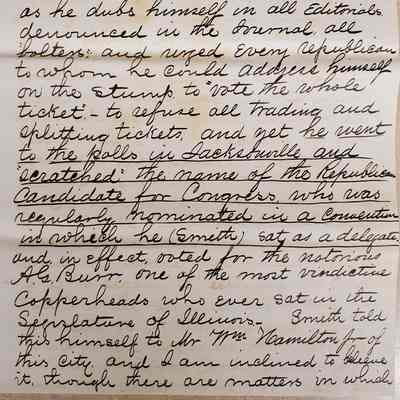 as he dubs himself in all Editorials
denounced in the Journal, all
bolters: and urged Every republican
to whom he could address himself
on the stump to "vote the whole
ticket", - to refuse all trading and
splitting tickets, and yet he went
to the polls in Jacksonville and
"scratched" the name of the Republican
Candidate for Congress, who was
regularly nominated in a Convention
in which he (Smith) sat as a delegate,
and, in effect, voted for the notorious
A.G. Burr, one of the most vindictive
Copperheads who ever sat in the
Legislature of Illinois. Smith told
this himself to Mr Wm Hamilton Jr of
this City, and I am inclined to believe
it, though there are matters in which